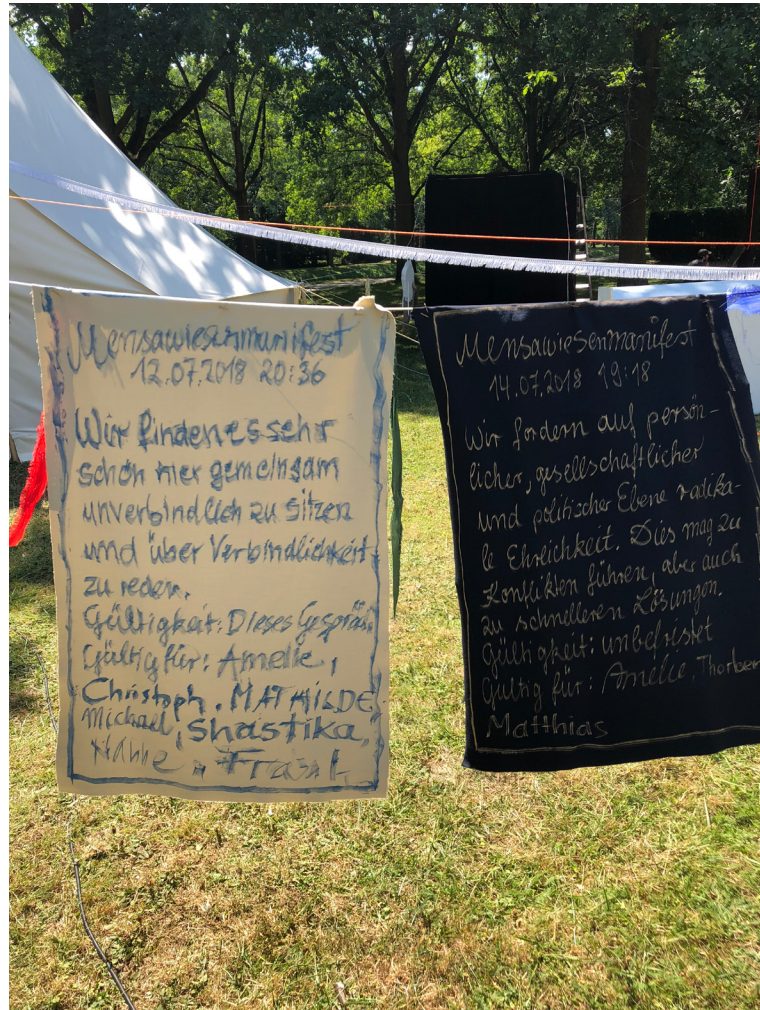 Mensawiesenmanifest
12.07.2018 20:36
Wir finden es sehr
schön hier gemeinsam
unverbindlich zu sitzen
und über Verbindlichkeit
zu reden.
Gültigkeit: Dieses Gespräch.
Gültig für: Amelie,
Christoph, MATHILDE
Michael, Shastika,
Hanne, Frank
Mensawiesenmanifest
14.07.2018 19:18
Wir fordern auf persön-
licher, gesellschaftlicher
und politischer Ebene radika-
le Ehrlichkeit. Dies mag zu
Konflikten führen, aber auch
zu schnelleren Lösungen.
Gültigkeit: unbefristet
Gültig für: Amelie, Thorben
Matthias